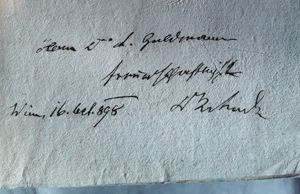 Herrn Dr L. Goldmann
freundschaftlichst
Wien, 16. Oct. 898